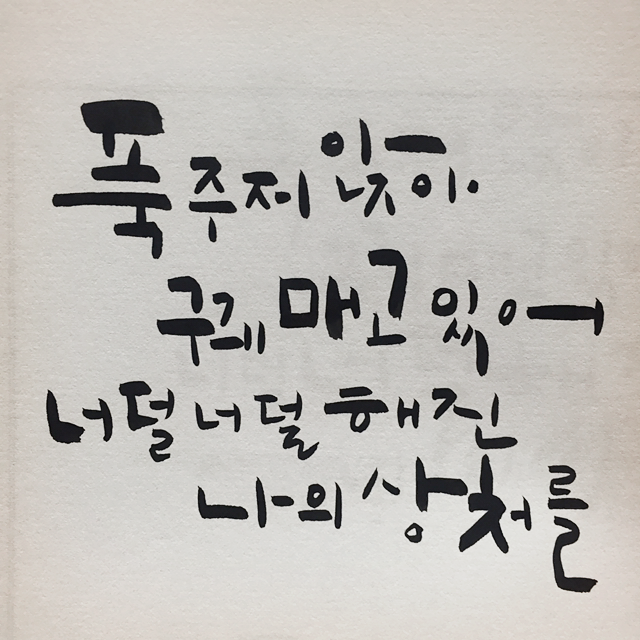 푹 주저 앉아.
꿰매고 있어
너덜너덜 해진
나의 상처를